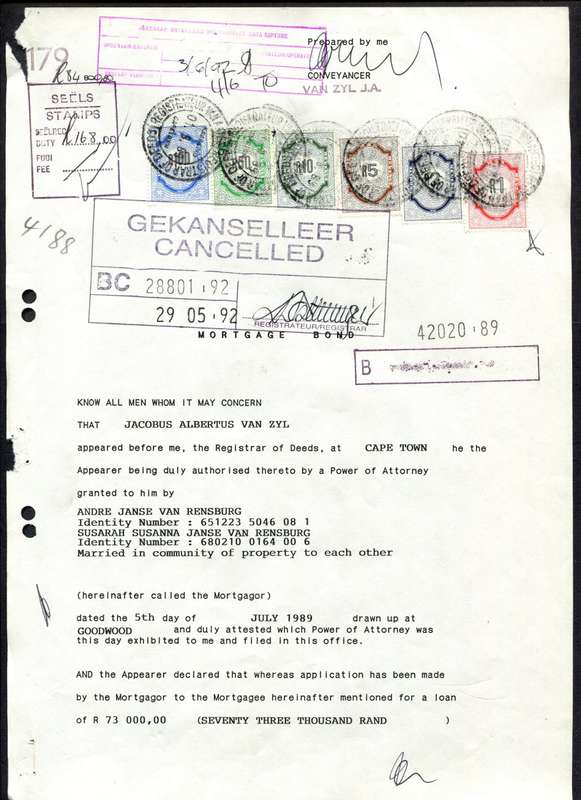 179
Prepared by me
3/6/92
4/6
CONVEYANCER
VAN ZYL J.A.
R84 000,00
SEËLS
STAMPS
SEËLREG
DUTY R168,00
FOOI
FEE
R100
R10
R5
R1
4188
GEKANSELLEER
CANCELLED
BC 28801 .92
29 05.92
REGISTRATEUR/REGISTRAR
MORTGAGE BOND
42020.89
B
KNOW ALL MEN WHOM IT MAY CONCERN
THAT JACOBUS ALBERTUS VAN ZYL
appeared before me, the Registrar of Deeds, at CAPE TOWN he the
Appearer being duly authorised thereto by a Power of Attorney
granted to him by
ANDRE JANSE VAN RENSBURG
Identity Number : 651223 5046 08 1
SUSARAH SUSANNA JANSE VAN RENSBURG
Identity Number : 680210 0164 00 6
Married in community of property to each other
(hereinafter called the Mortgagor)
dated the 5th day of JULY 1989 drawn up at
GOODWOOD and duly attested which Power of Attorney was
this day exhibited to me and filed in this office.
AND the Appearer declared that whereas application has been made
by the Mortgagor to the Mortgagee hereinafter mentioned for a loan
of R 73 000,00 (SEVENTY THREE THOUSAND RAND )